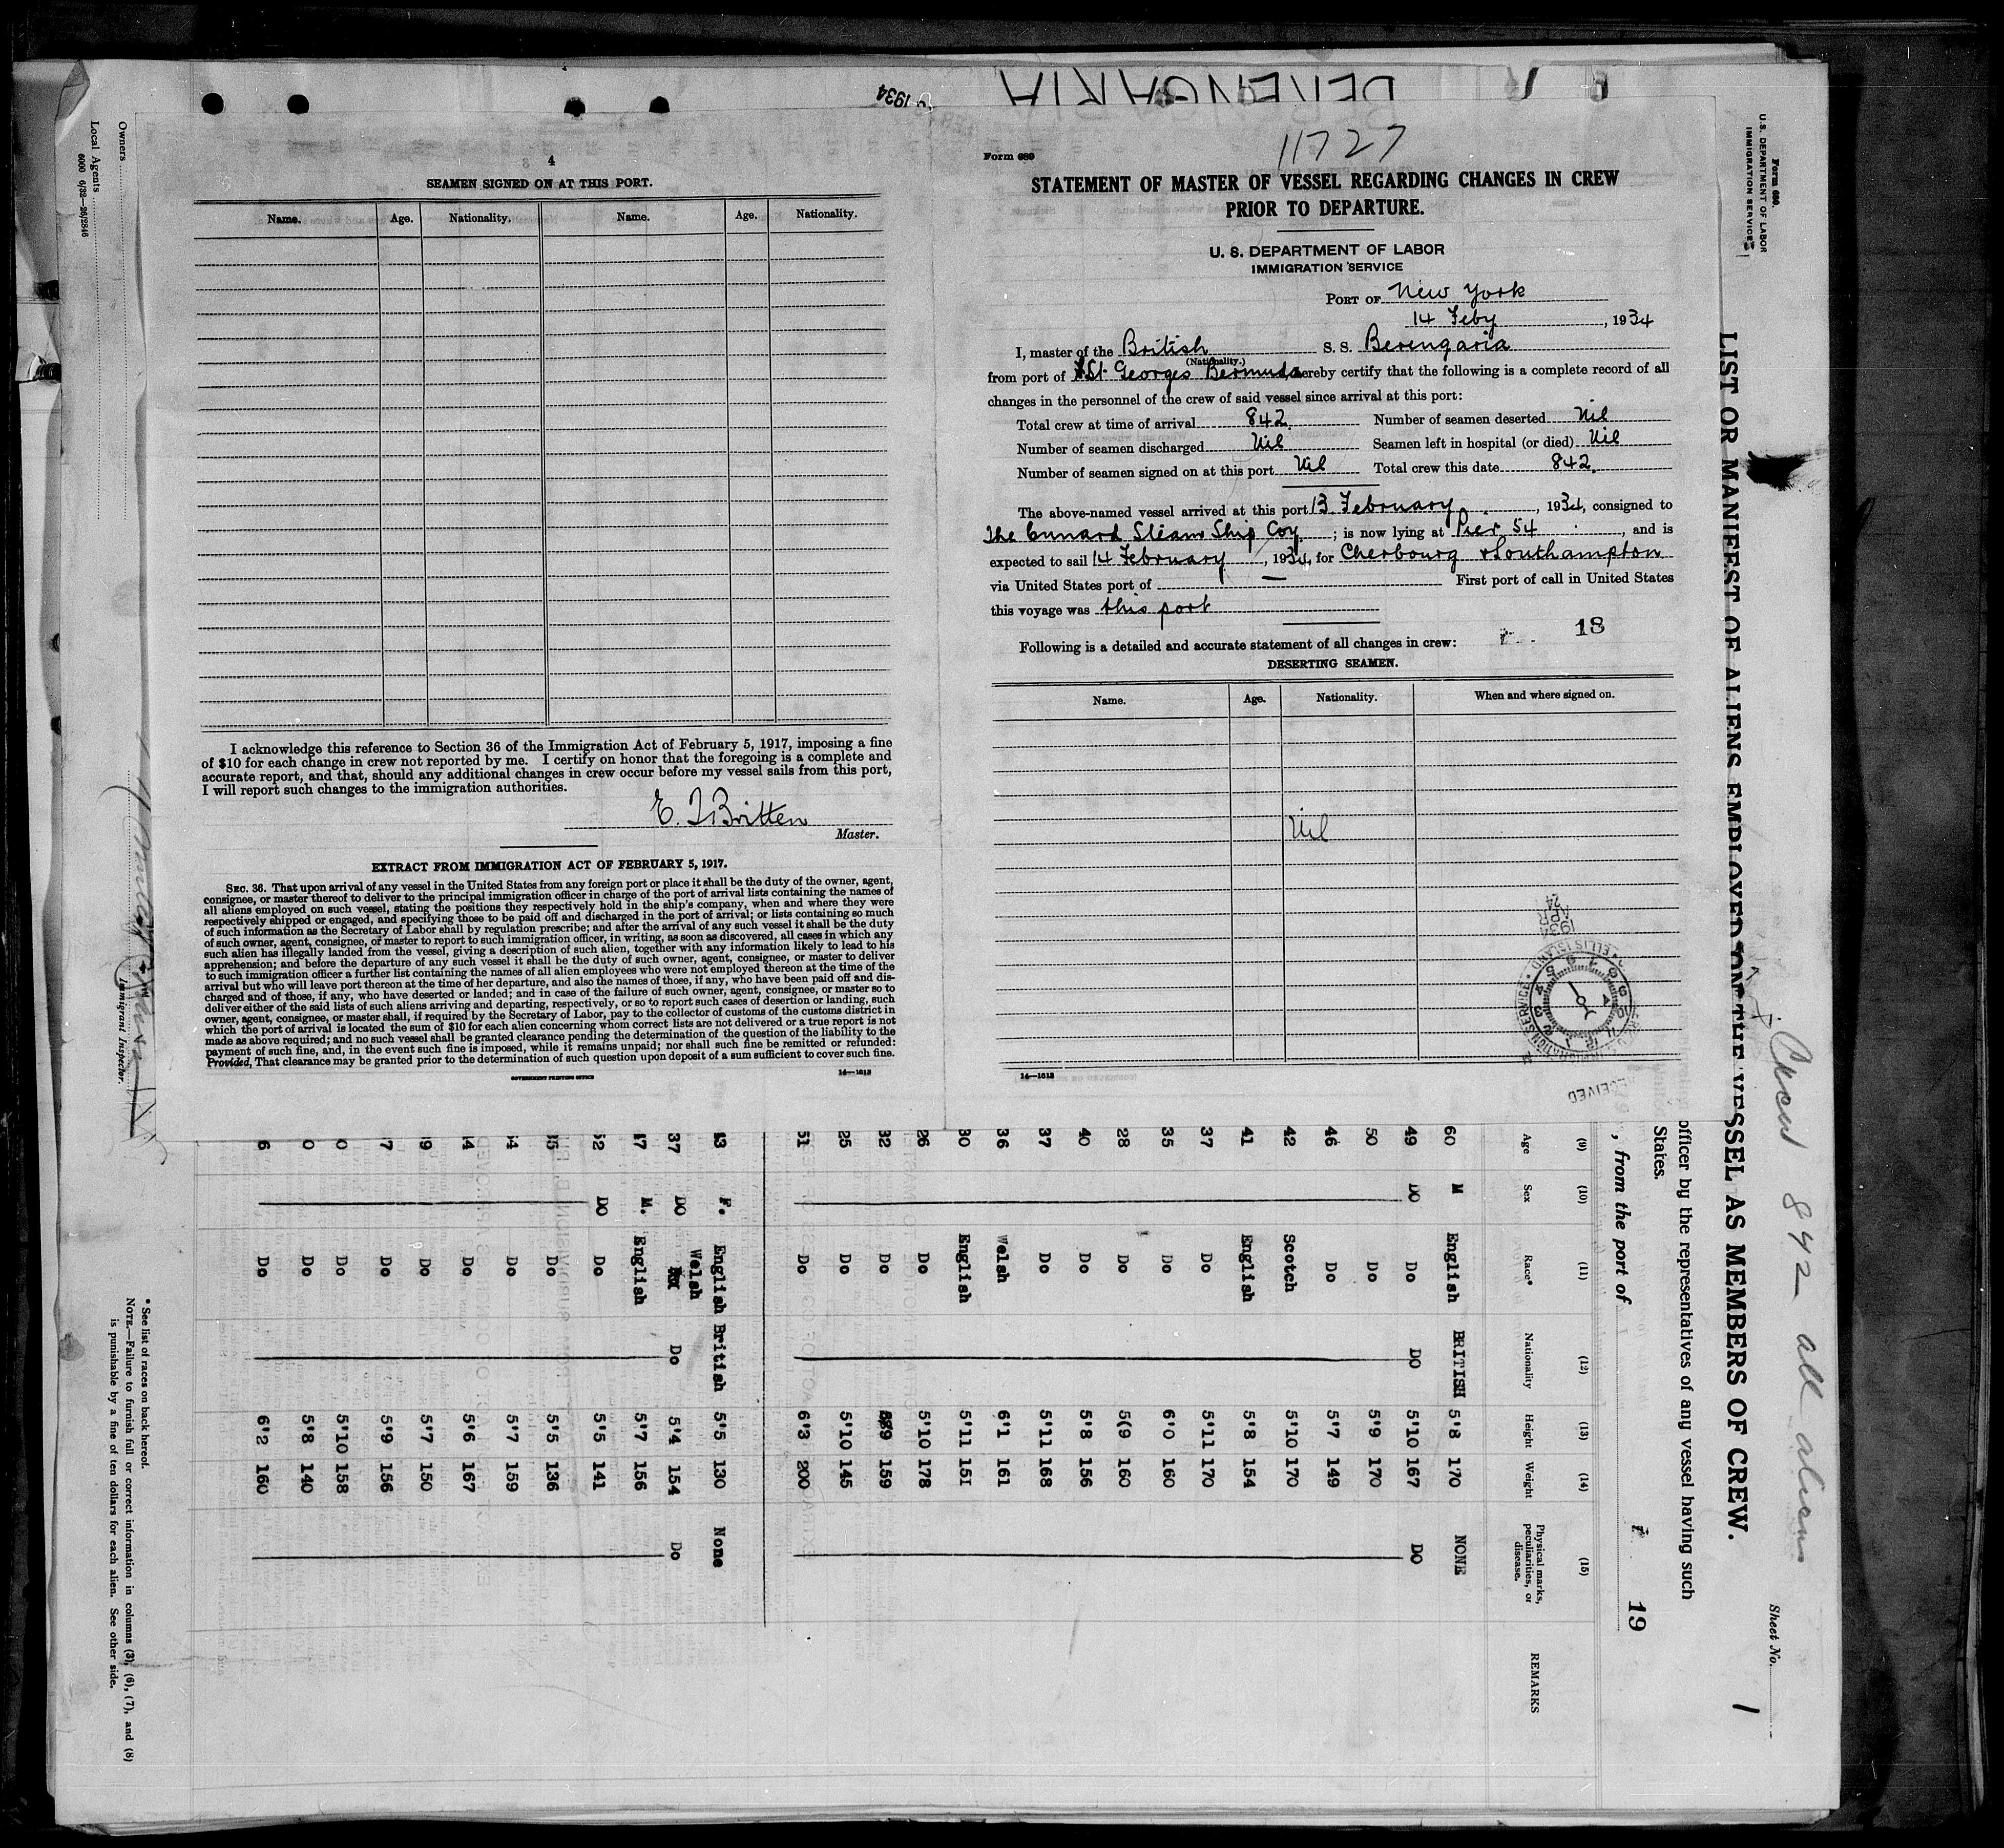 BERENGARIA
1934
4
SEAMEN SIGNED ON AT THIS PORT.
Name. Age. Nationality. Name. Age. Nationality.
I acknowledge this reference to Section 36 of the Immigration Act of February 5, 1917, imposing a fine
of $10 for each change in crew not reported by me. I certify on honor that the foregoing is a complete and
accurate report, and that, should any additional changes in crew occur before my vessel sails from this port,
I will report such changes to the immigration authorities.
E. T. Britten
Master.
EXTRACT FROM IMMIGRATION ACT OF FEBRUARY 5, 1917.
SEC. 36. That upon arrival of any vessel in the United States from any foreign port or place it shall be the duty of the owner, agent,
consignee, or master thereof to deliver to the principal immigration officer in charge of the port of arrival lists containing the names of
all aliens employed on such vessel, stating the positions they respectively hold in the ship's company, when and where they were
respectively shipped or engaged, and specifying those to be paid off and discharged in the port of arrival; or lists containing so much
of such information as the Secretary of Labor shall by regulation prescribe; and after the arrival of any such vessel it shall be the duty
of such owner, agent, consignee, or master to report to such immigration officer, in writing, as soon as discovered, all cases in which any
such alien has illegally landed from the vessel, giving a description of such alien, together with any information likely to lead to his
apprehension; and before the departure of any such vessel it shall be the duty of such owner, agent, consignee, or master to deliver
to such immigration officer a further list containing the names of all alien employees who were not employed thereon at the time of the
arrival but who will leave port thereon at the time of her departure, and also the names of those, if any, who have been paid off and dis-
charged and of those, if any, who have deserted or landed; and in case of the failure of such owner, agent, consignee, or master so to
deliver either of the said lists of such aliens arriving and departing, respectively, or so to report such cases of desertion or landing, such
owner, agent, consignee, or master shall, if required by the Secretary of Labor, pay to the collector of customs of the customs district in
which the port of arrival is located the sum of $10 for each alien concerning whom correct lists are not delivered or a true report is not
made as above required; and no such vessel shall be granted clearance pending the determination of the question of the liability to the
payment of such fine, and, in the event such fine is imposed, while it remains unpaid; nor shall such fine be remitted or refunded:
Provided, That clearance may be granted prior to the determination of such question upon deposit of a sum sufficient to cover such fine.
GOVERNMENT PRINTING OFFICE 14—1813
11727
Form 689
STATEMENT OF MASTER OF VESSEL REGARDING CHANGES IN CREW
PRIOR TO DEPARTURE.
U. S. DEPARTMENT OF LABOR
IMMIGRATION SERVICE
PORT OF New York
14 Feby, 1934
I, master of the British S. S. Berengaria
(Nationality.)
from port of St. Georges Bermuda hereby certify that the following is a complete record of all
changes in the personnel of the crew of said vessel since arrival at this port:
Total crew at time of arrival 842 Number of seamen deserted Nil
Number of seamen discharged Nil Seamen left in hospital (or died) Nil
Number of seamen signed on at this port Nil Total crew this date 842.
The above-named vessel arrived at this port 13 February, 1934, consigned to
The Cunard Steam Ship Coy; is now lying at Pier 54, and is
expected to sail 14 February, 1934, for Cherbourg & Southampton
via United States port of — First port of call in United States
this voyage was this port
18
Following is a detailed and accurate statement of all changes in crew:
DESERTING SEAMEN.
Name. Age. Nationality. When and where signed on.
Nil
14—1813
1934
APR
24
ELLIS ISLAND
IMMIGRATION SERVICE
RECEIVED
Form 680.
U.S. DEPARTMENT OF LABOR
IMMIGRATION SERVICE
Sheet No. 1
Crew 842 all aliens
LIST OR MANIFEST OF ALIENS EMPLOYED ON THE VESSEL AS MEMBERS OF CREW.
officer by the representatives of any vessel having such
States.
, from the port of 19
(9) (10) (11) (12) (13) (14) (15)
Age Sex Race* Nationality Height Weight Physical marks, peculiarities, or disease. REMARKS
60 M English BRITISH 5'8 170 NONE
49 DO Do DO 5'10 167 DO
50 Do 5'9 170
46 Do 5'7 149
42 Scotch 5'10 170
41 English 5'8 154
37 Do 5'11 170
35 Do 6'0 160
28 Do 5(9 160
40 Do 5'8 156
37 Do 5'11 168
36 Welsh 6'1 161
30 English 5'11 151
26 Do 5'10 178
32 Do 159
25 Do 5'10 145
51 Do 6'3 200
43 F. English British 5'5 130 None
37 DO Welsh Do 5'4 154 Do
47 M. English 5'7 156
52 DO Do 5'5 141
Do 5'5 136
Do 5'7 159
Do 5'6 167
Do 5'7 150
Do 5'9 156
Do 5'10 158
Do 5'8 140
6 Do 6'2 160
* See list of races on back hereof.
NOTE.—Failure to furnish full or correct information in columns (3), (6), (7), and (8)
is punishable by a fine of ten dollars for each alien. See other side.
Immigrant Inspector.
Owners
Local Agents
6000 6/32—26/2846